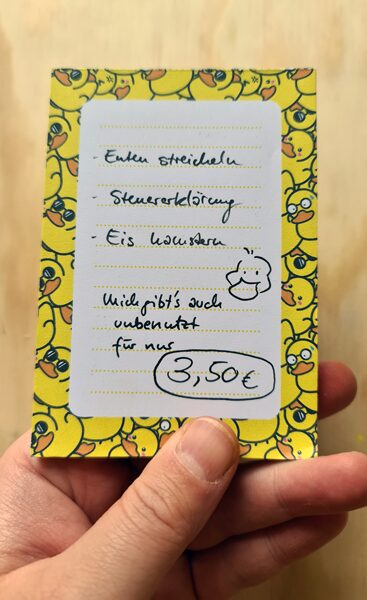 - Enten streicheln
- Steuererklärung
- Eis hamstern
Mich gibt's auch
unbenutzt
für nur
3,50€